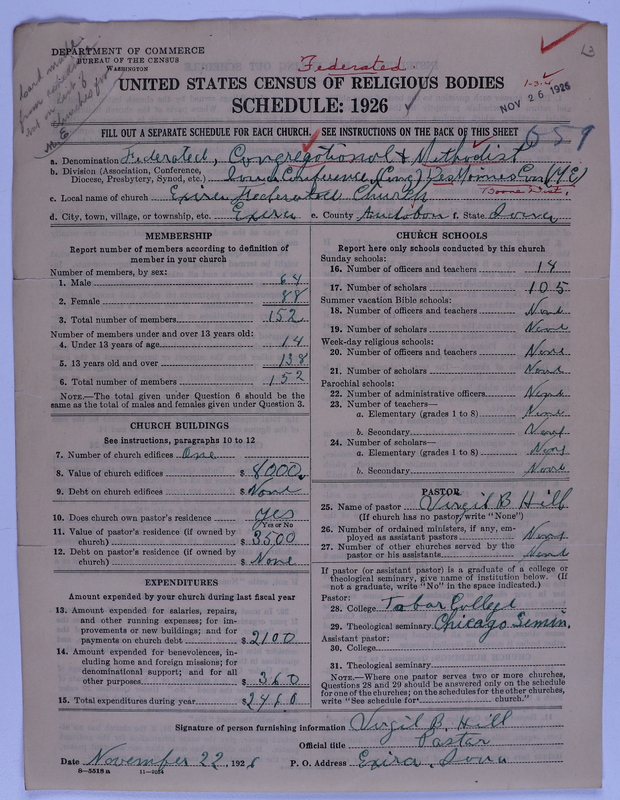 DEPARTMENT OF COMMERCE
BUREAU OF THE CENSUS
WASHINGTON
Federated
13
1-3-4
UNITED STATES CENSUS OF RELIGIOUS BODIES
SCHEDULE: 1926
NOV 26 1926
FILL OUT A SEPARATE SCHEDULE FOR EACH CHURCH. SEE INSTRUCTIONS ON THE BACK OF THIS SHEET
659
a. Denomination Federated, Congregational & Methodist
b. Division (Association, Conference, Diocese, Presbytery, Synod, etc.) Iowa Conference (Cong) Des Moines Con (M E)
Boone Dist.
c. Local name of church Exira Federated Church
d. City, town, village, or township, etc. Exira e. County Audubon f. State Iowa
MEMBERSHIP
Report number of members according to definition of member in your church
Number of members, by sex:
1. Male 64
2. Female 88
3. Total number of members 152
Number of members under and over 13 years old:
4. Under 13 years of age 14
5. 13 years old and over 138
6. Total number of members 152
NOTE.—The total given under Question 6 should be the same as the total of males and females given under Question 3.
CHURCH BUILDINGS
See instructions, paragraphs 10 to 12
7. Number of church edifices One
8. Value of church edifices $ 8000.
9. Debt on church edifices $ None
10. Does church own pastor's residence Yes
Yes or No
11. Value of pastor's residence (if owned by church) $ 3500
12. Debt on pastor's residence (if owned by church) $ None
EXPENDITURES
Amount expended by your church during last fiscal year
13. Amount expended for salaries, repairs, and other running expenses; for improvements or new buildings; and for payments on church debt $ 2100
14. Amount expended for benevolences, including home and foreign missions; for denominational support; and for all other purposes $ 360
15. Total expenditures during year $ 2460
CHURCH SCHOOLS
Report here only schools conducted by this church
Sunday schools:
16. Number of officers and teachers 14
17. Number of scholars 105
Summer vacation Bible schools:
18. Number of officers and teachers None
19. Number of scholars None
Week-day religious schools:
20. Number of officers and teachers None
21. Number of scholars None
Parochial schools:
22. Number of administrative officers None
23. Number of teachers—
a. Elementary (grades 1 to 8) None
b. Secondary None
24. Number of scholars—
a. Elementary (grades 1 to 8) None
b. Secondary None
PASTOR
25. Name of pastor Virgil B Hill
(If church has no pastor, write "None")
26. Number of ordained ministers, if any, employed as assistant pastors None
27. Number of other churches served by the pastor or his assistants None
If pastor (or assistant pastor) is a graduate of a college or theological seminary, give name of institution below. (If not a graduate, write "No" in the space indicated.)
Pastor:
28. College Tabor College
29. Theological seminary Chicago Semin.
Assistant pastor:
30. College
31. Theological seminary
NOTE.—Where one pastor serves two or more churches, Questions 28 and 29 should be answered only on the schedule for one of the churches; on the schedules for the other churches, write "See schedule for church."
Signature of person furnishing information Virgil B. Hill
Official title Pastor
Date November 22, 1926 P. O. Address Exira, Iowa
8—5518 a 11—9054